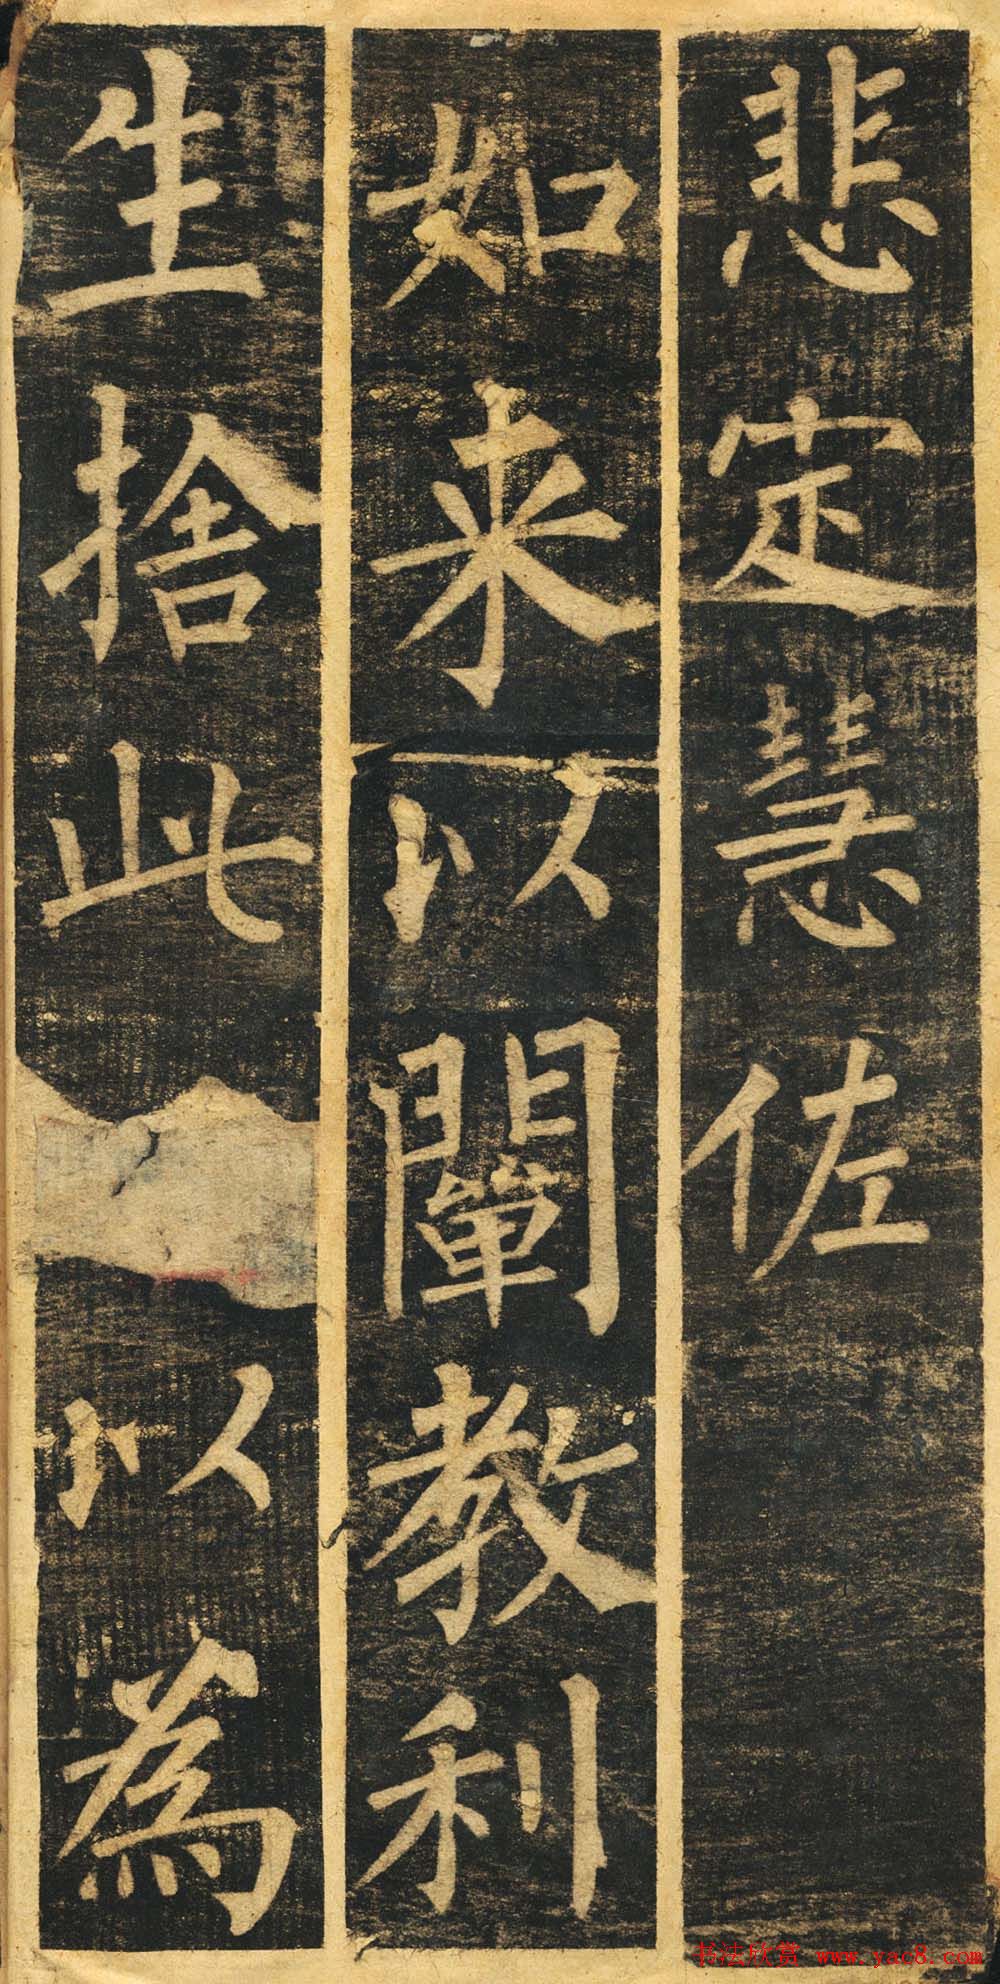 悲定慧佐
如来以闡教利
生捨此以為
书法欣赏 www.yac8.com